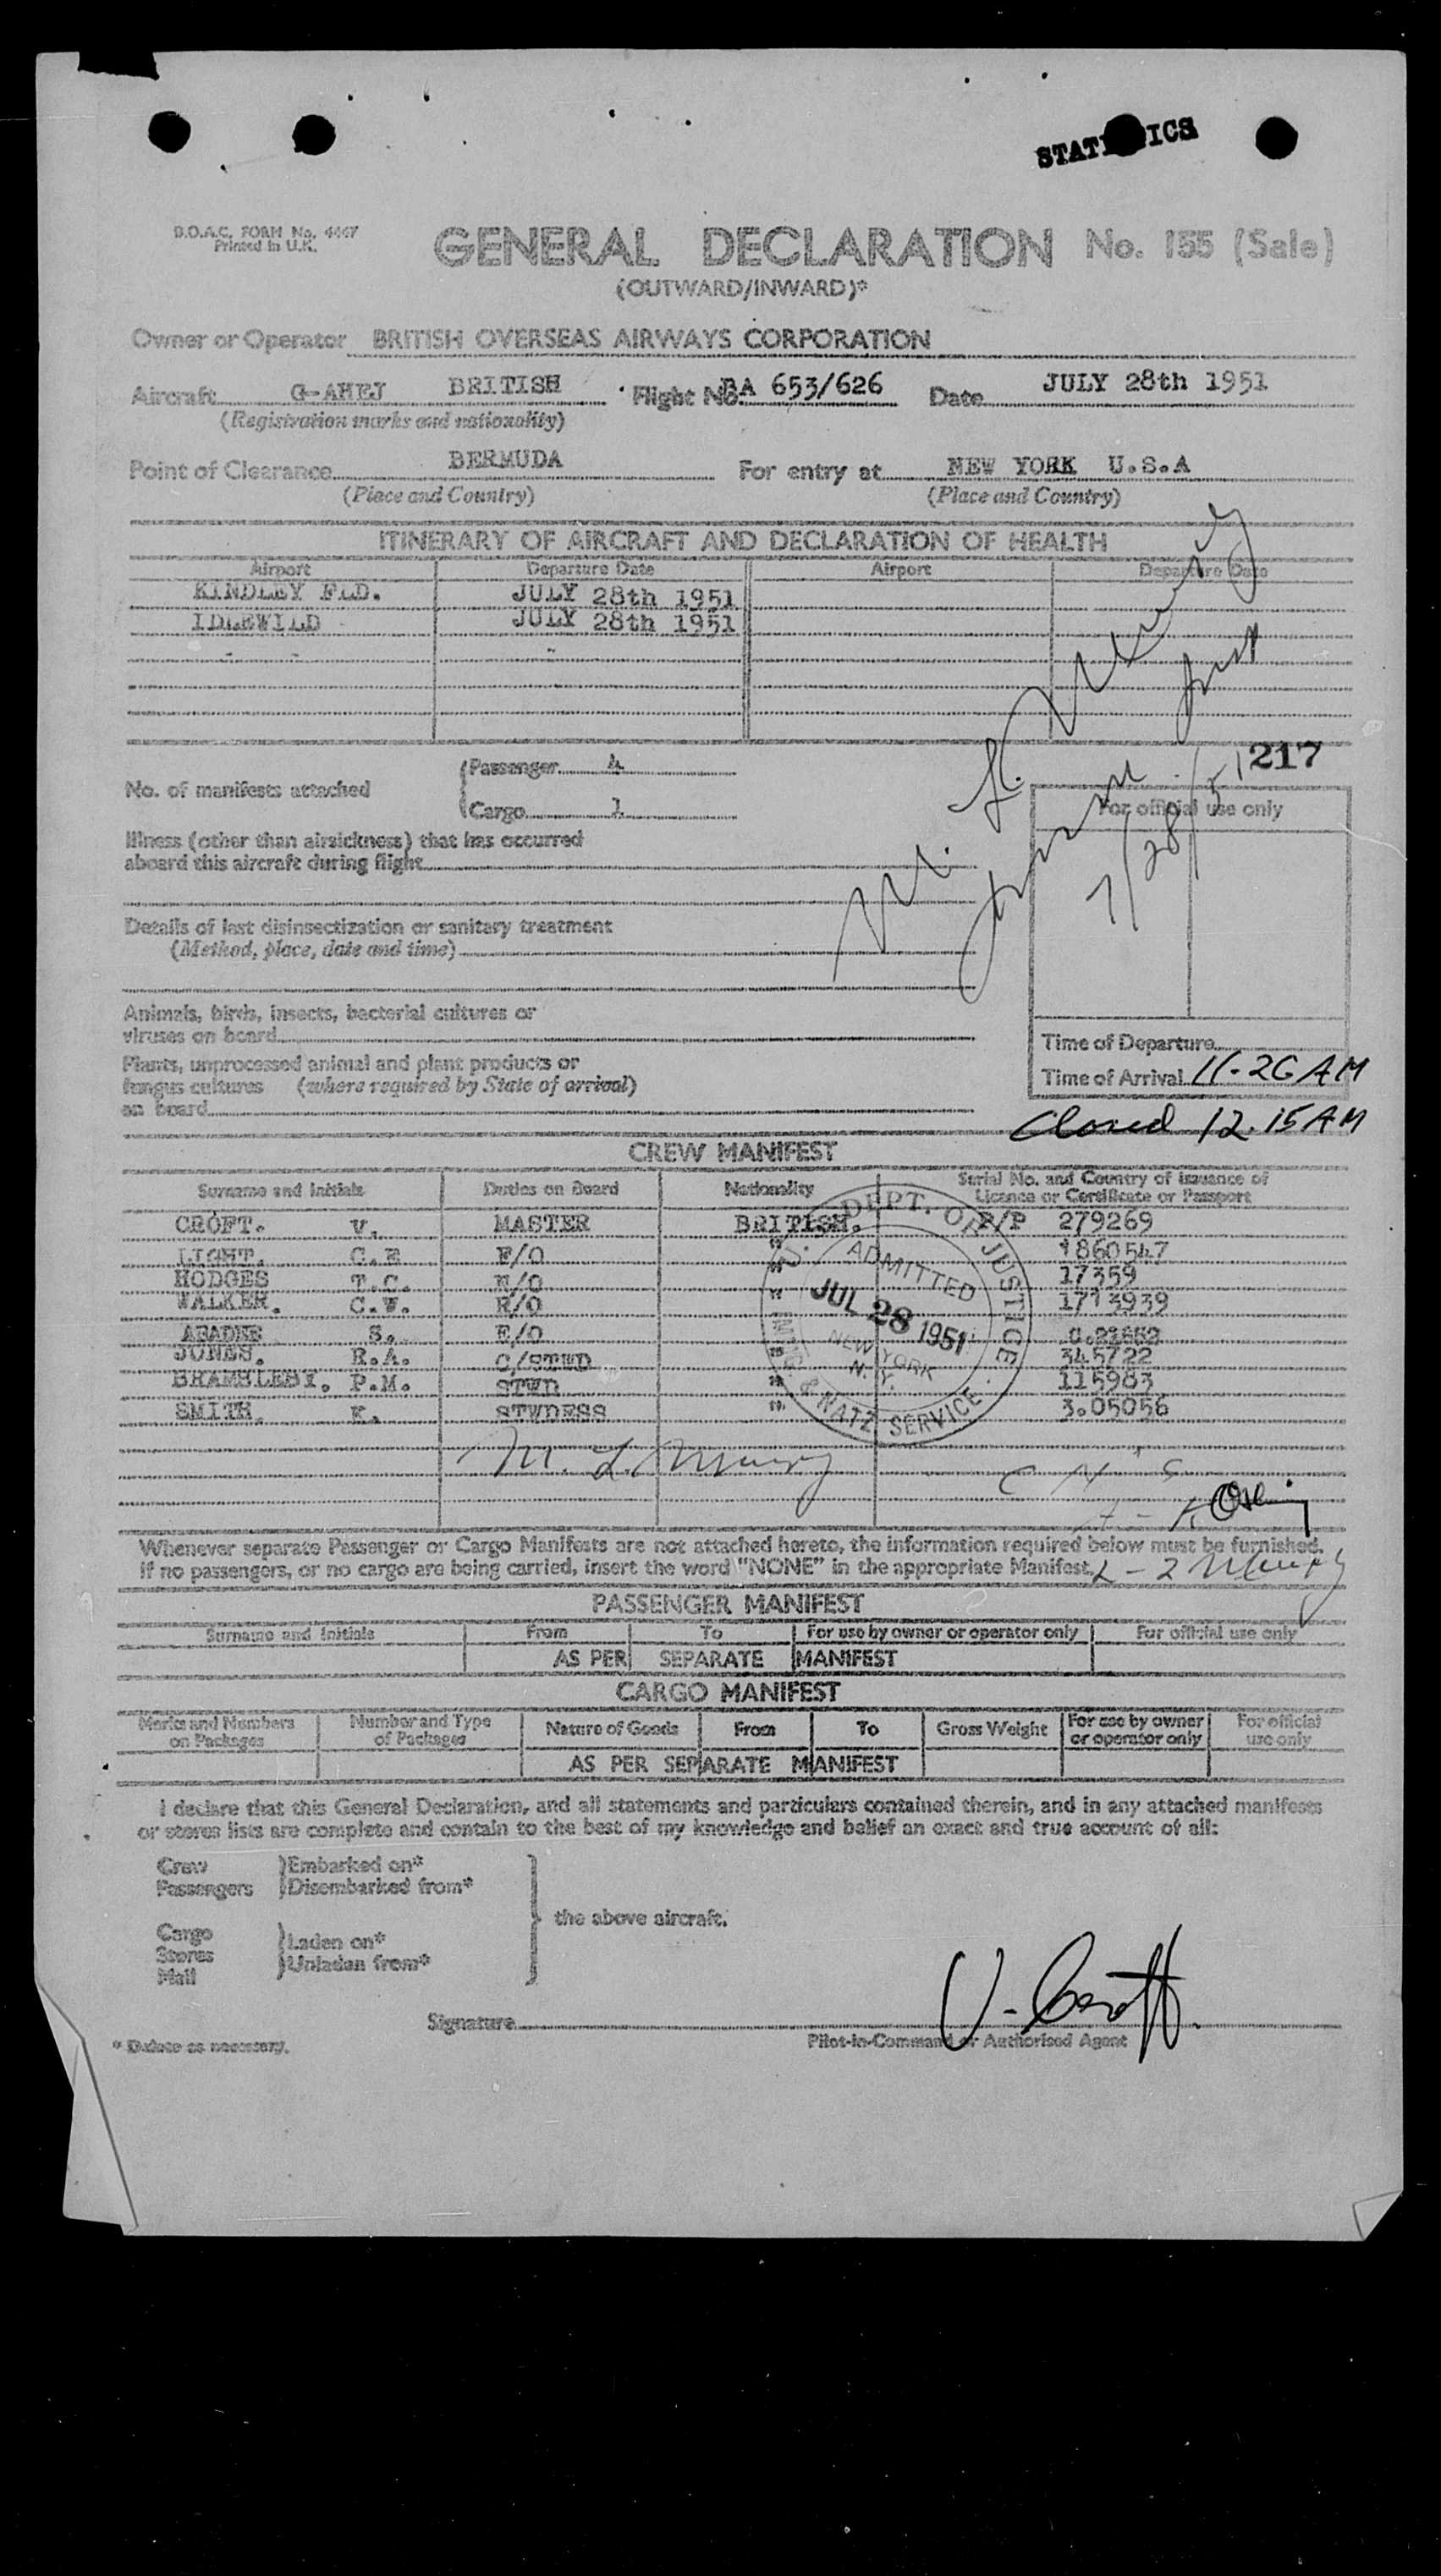 STATISTICS
B.O.A.C. FORM No. 4447
Printed in U.K.
GENERAL DECLARATION No. 155 (Sale)
(OUTWARD/INWARD)*
Owner or Operator BRITISH OVERSEAS AIRWAYS CORPORATION
Aircraft G-AHEJ BRITISH Flight No. BA 653/626 Date JULY 28th 1951
(Registration marks and nationality)
Point of Clearance BERMUDA For entry at NEW YORK U.S.A
(Place and Country) (Place and Country)
ITINERARY OF AIRCRAFT AND DECLARATION OF HEALTH
Airport Departure Date Airport Departure Date
KINDLEY FLD. JULY 28th 1951
IDLEWILD JULY 28th 1951
217
No. of manifests attached
Passenger 4
Cargo 1
For official use only
7/28/51
Illness (other than airsickness) that has occurred
aboard this aircraft during flight
Details of last disinsectization or sanitary treatment
(Method, place, date and time)
Animals, birds, insects, bacterial cultures or
viruses on board
Plants, unprocessed animal and plant products or
fungus cultures (where required by State of arrival)
on board
Time of Departure
Time of Arrival 11-26 AM
Closed 12.15 AM
CREW MANIFEST
Surname and Initials Duties on Board Nationality Serial No. and Country of issuance of
Licence or Certificate or Passport
CROFT. V. MASTER BRITISH. P/P 279269
LIGHT. C.E F/O " 1860547
HODGES T.C. N/O " 17359
WALKER. C.W. R/O " 1713939
ABADEE S. E/O "
JONES. R.A. C/STWD " 345722
BRAMBLEBY. P.M. STWD " 115983
SMITH K. STWDESS " 3.05056
U.S. DEPT. OF JUSTICE
ADMITTED
JUL 28 1951
NEW YORK
N. Y.
IMMIG. & NATZ SERVICE
Whenever separate Passenger or Cargo Manifests are not attached hereto, the information required below must be furnished.
If no passengers, or no cargo are being carried, insert the word "NONE" in the appropriate Manifest.
PASSENGER MANIFEST
Surname and Initials From To For use by owner or operator only For official use only
AS PER SEPARATE MANIFEST
CARGO MANIFEST
Marks and Numbers on Packages Number and Type of Packages Nature of Goods From To Gross Weight For use by owner or operator only For official use only
AS PER SEPARATE MANIFEST
I declare that this General Declaration, and all statements and particulars contained therein, and in any attached manifests
or stores lists are complete and contain to the best of my knowledge and belief an exact and true account of all:
Crew Embarked on*
Passengers Disembarked from*
the above aircraft.
Cargo
Stores
Mail
Laden on*
Unladen from*
Signature V. Croft.
Pilot-in-Command or Authorised Agent
* Delete as necessary.